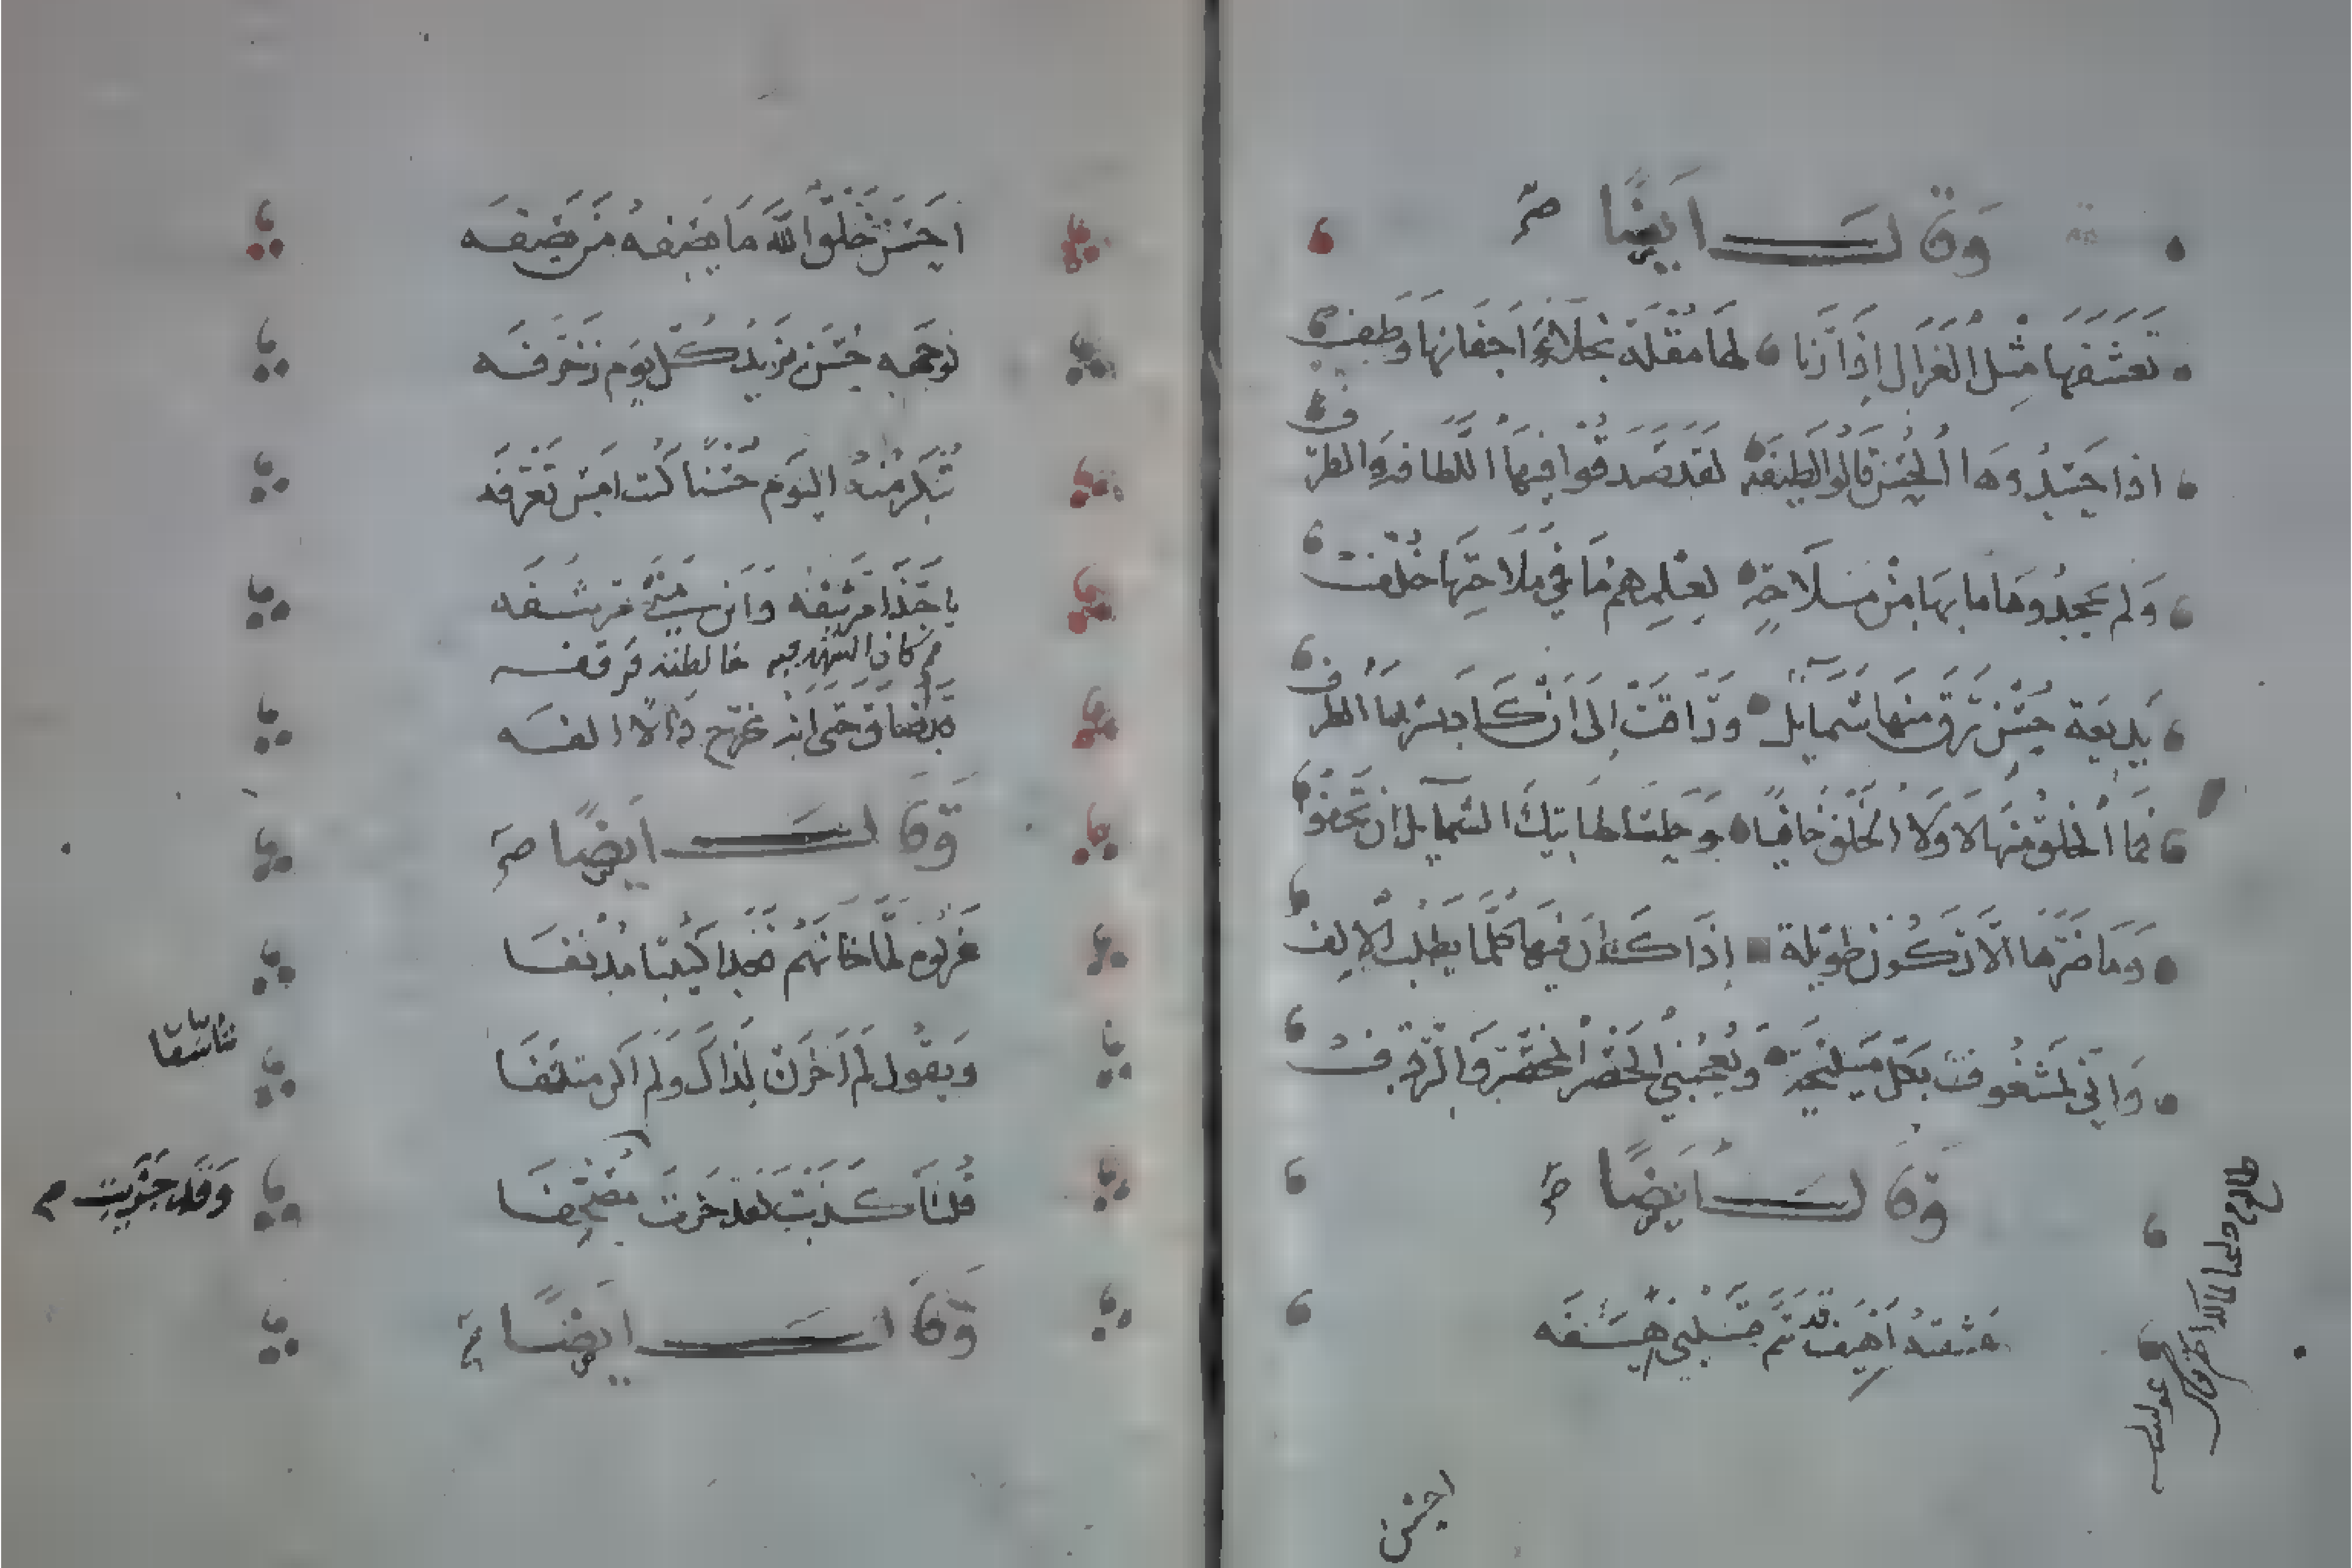 وقال ايضًا
تعشقتها مثل الغزال اذا رنا لها مقلة نجلاء اجفانها وطف
اذا حسدوها الحسن قالوا لطيفة لقد صدقوا فيها اللطافة والظرف
ولم يجحدوها ما بها من ملاحة لعلمهم ما في ملاحتها خلف
بديعة حسن رق منها شمايل وراقت الى ان كاد يشربها الطرف
فما الخلق منها لا ولا الخلق جافيا وحاشا لهاتيك الشمايل ان تجفو
وما ضرها الا تكون طويلة اذا كان فيها كلما يطلب الالف
واني لمشغوف بكل مليحة ويعجبني الخصر المخصر والردف
وقال ايضًا
عشقته اهيف قد تم حسنه هيفه
احسن
احسن خلق الله ما يضيفه من يضيفه
لوجهه حسن يزيد كل يوم زخرفه
تنكر منه اليوم حسنا كنت امس تعرفه
يا حبذا مرشفه واين مني مرشفه
كان الشهد فيه خالطته قرقفه
قد ضاق حتى
وقال ايضًا
عزلوه لما خانهم فغدا كئيبا مدنفا
ويقول لم احزن لذاك ولم اكن متلهفا
متاسفا
قلنا كذبت لقد حزنت مصحفا
وقد خريت
وقال ايضًا